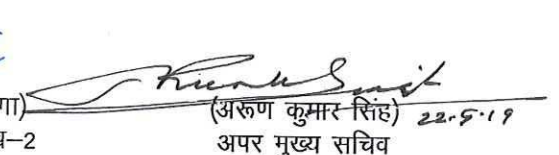 गा) (अरूण कुमार सिंह) 22.5.19
व–2 अपर मुख्य सचिव